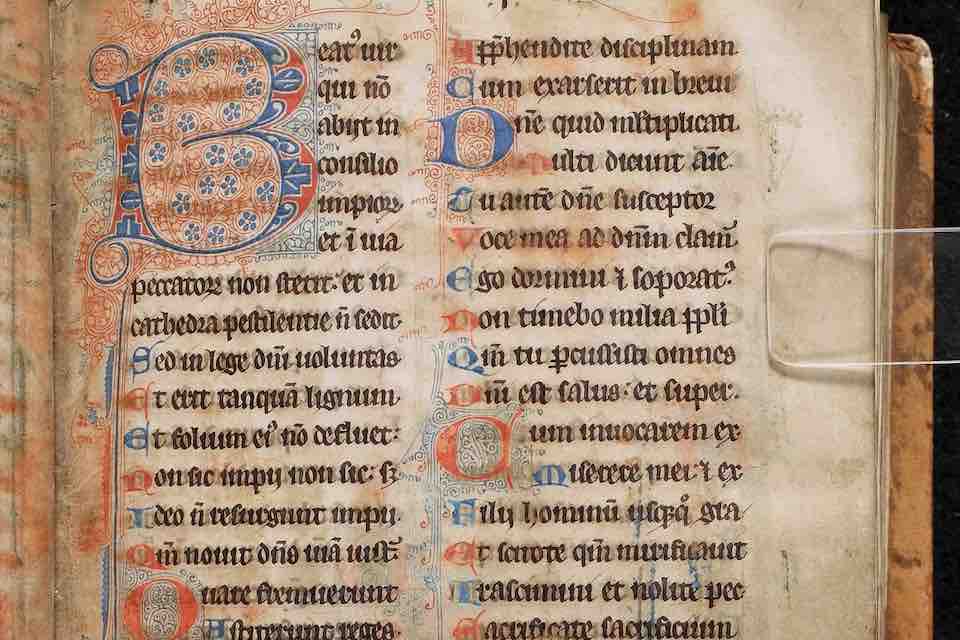 Beatꝰ uir
qui nō
abijt in
consilio
impioꝝ
et ī uia
peccatoꝝ non stetit: et in
cathedra pestilentie n̄ sedit.
Sed in lege dn̄i uoluntas
Et erit tanquā lignum
Et folium eiꝰ nō defluet:
Non sic impij non sic: sꝫ
Ideo n̄ resurgunt impij
Qm̄ nouit dn̄s uiā iust
Quare fremuerunt
Astiterunt reges
Apphendite disciplinam
Cum exarserit in breui
Dn̄e quid mltiplicati
Multi dicunt aīe
Tu autē dn̄e susceptor
Voce mea ad dn̄m clam̄
Ego dormiui ⁊ soporatꝰ
Non timebo milia ppli
Qm̄ tu ꝑcussisti omnes
Dn̄i est salus: et super
Cum inuocarem ex
Miserere mei: ⁊ ex
Filij hominū usqꝫ gra
Et scitote qm̄ mirificauit
Irascimini et nolite pec
Sacrificate sacrificium